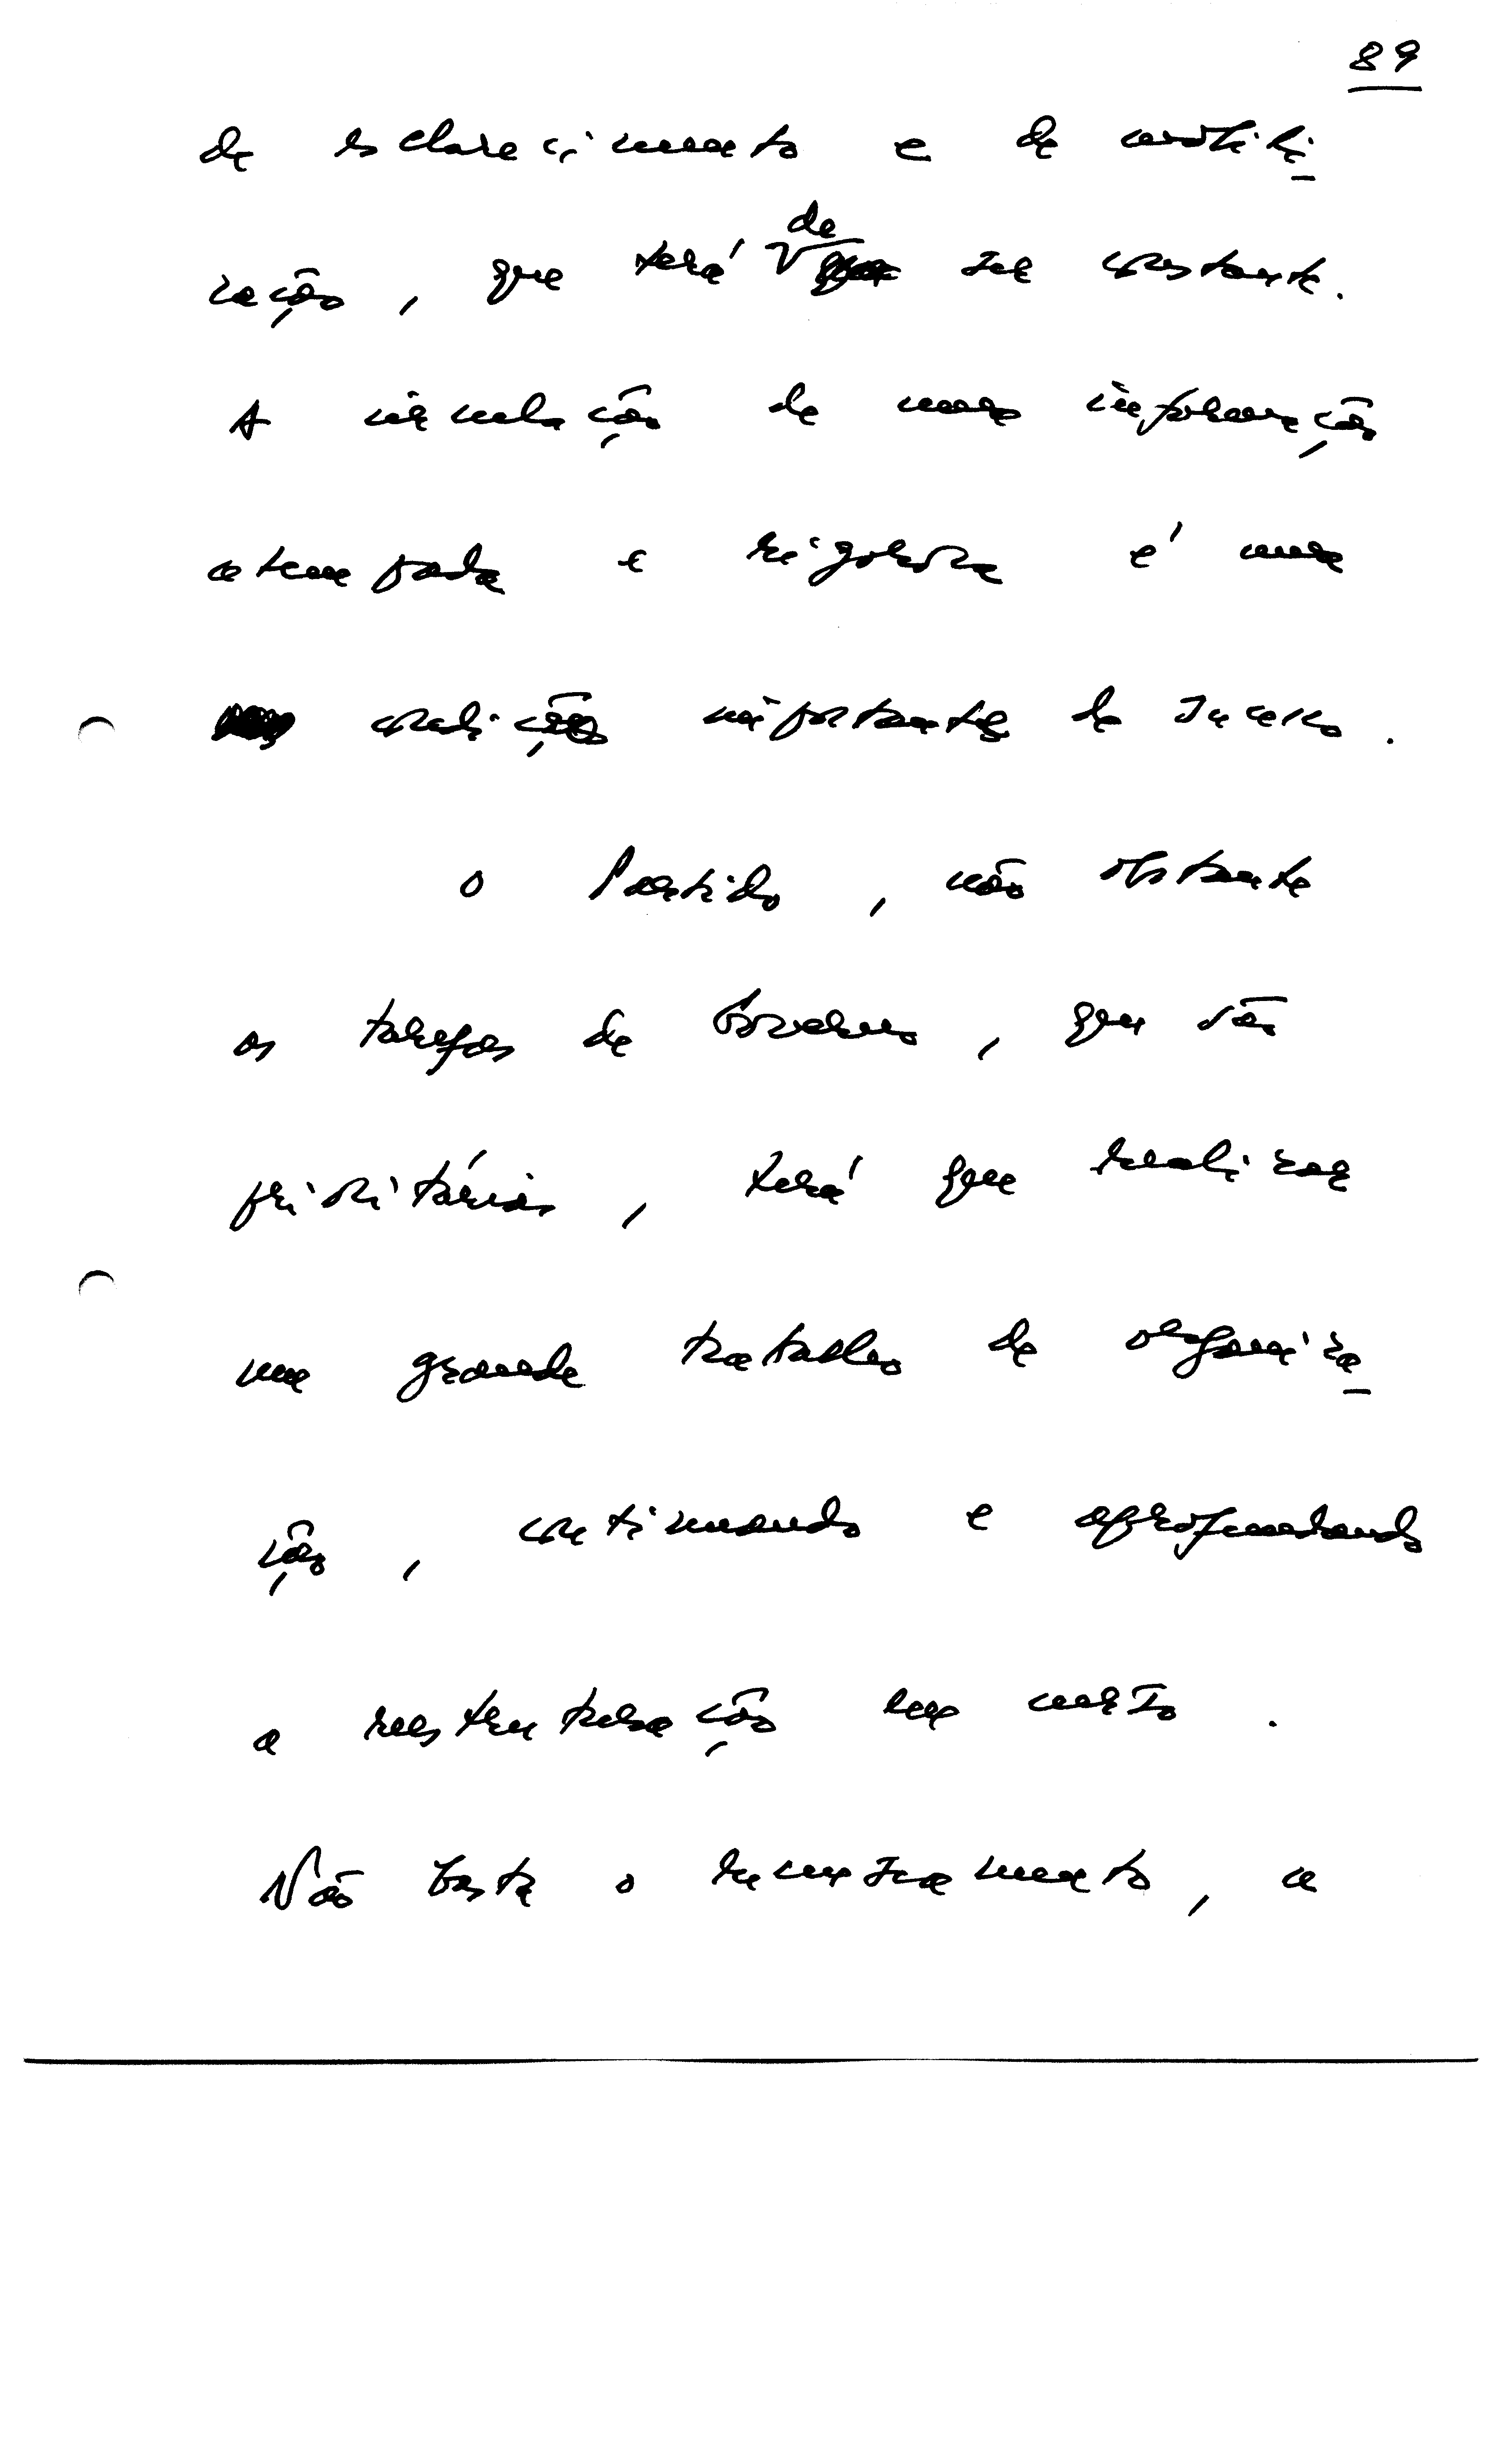 89
de esclarecimento e de mobili
zação, que terá de ser constante.
A circulação de uma informação
atempada e rigorosa é uma
condição importante de sucesso.
O Partido, não obstante
as tarefas de Governo, que são
prioritárias, terá que realizar
um grande trabalho de organiza
ção, continuando e aprofundando
a reestruturação em curso.
Não basta o recenseamento, a